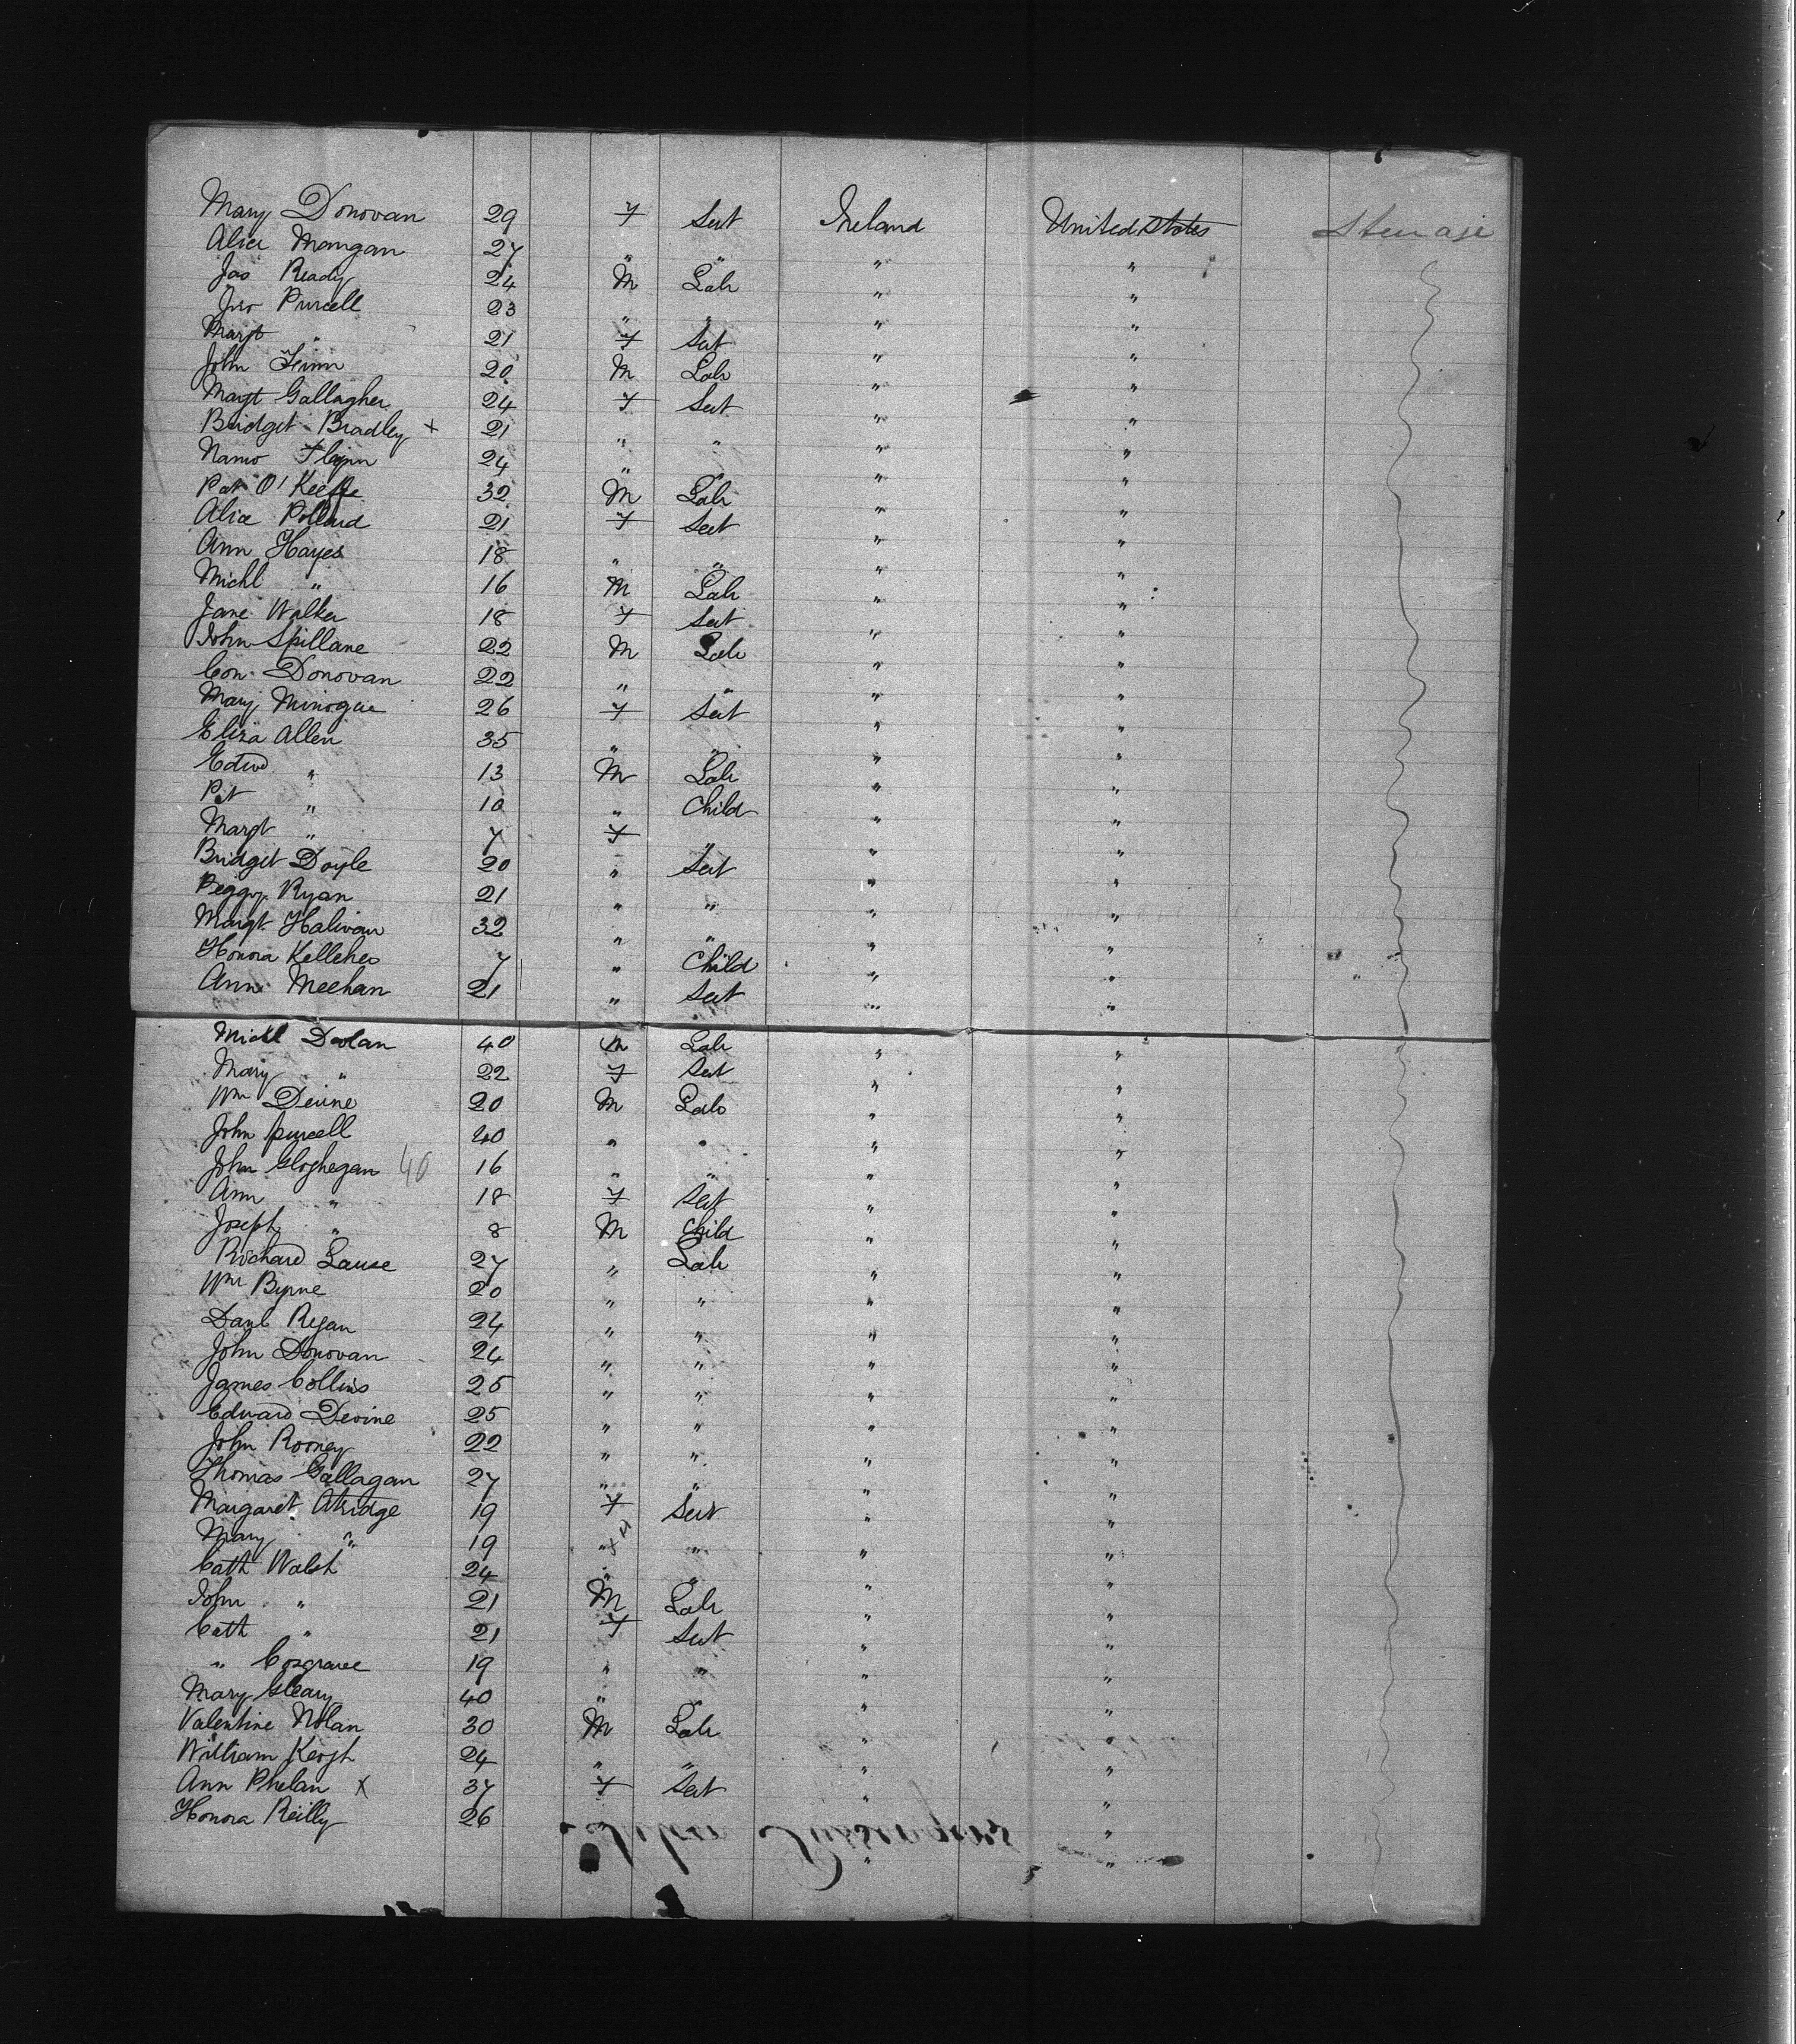 Mary Donovan 29 F Sert Ireland United States Steerage
Alice Mangan 27 " " " "
Jas Ready 24 M Lab " "
Jno Purcell 23 " " " "
Margt " 21 F Sert " "
John Finn 20 M Lab " "
Margt Gallagher 24 F Sert " "
Bridget Bradley x 21 " " " "
Nano Flynn 24 " " " "
Pat O'Keeffe 32 M Lab " "
Alice Pollard 21 F Sert " "
Ann Hayes 18 " " " "
Michl " 16 M Lab " "
Jane Walker 18 F Sert " "
John Spillane 22 M Lab " "
Con. Donovan 22 " " " "
Mary Minogue 26 F Sert " "
Eliza Allen 35 " " " "
Edwd " 13 M Lab " "
Pat " 10 " Child " "
Margt " 7 F " " "
Bridget Doyle 20 " Sert " "
Peggy Ryan 21 " " " "
Margt Halivan 32 " " " "
Honora Kelleher 7 " Child " "
Ann Meehan 21 " Sert " "
Michl Doolan 40 M Lab " "
Mary " 22 F Sert " "
Wm Devine 20 M Lab " "
John Purcell 40 " " " "
John Gloghegan 40 16 " " " "
Ann " 18 F Sert " "
Joseph " 8 M Child " "
Richard Lause 27 " Lab " "
Wm Byrne 20 " " " "
Danl Regan 24 " " " "
John Donovan 24 " " " "
James Collins 25 " " " "
Edward Devine 25 " " " "
John Rooney 22 " " " "
Thomas Gallagan 27 " " " "
Margaret Atridge 19 F Sert " "
Mary " 19 " x " " "
Cath Walsh 24 " " " "
John " 21 M Lab " "
Cath " 21 F Sert " "
" Cosgrave 19 " " " "
Mary Gleary 40 " " " "
Valentine Nolan 30 M Lab " "
William Keogh 24 " " " "
Ann Phelan x 37 F Sert " "
Honora Reilly 26 " " "
Passengers